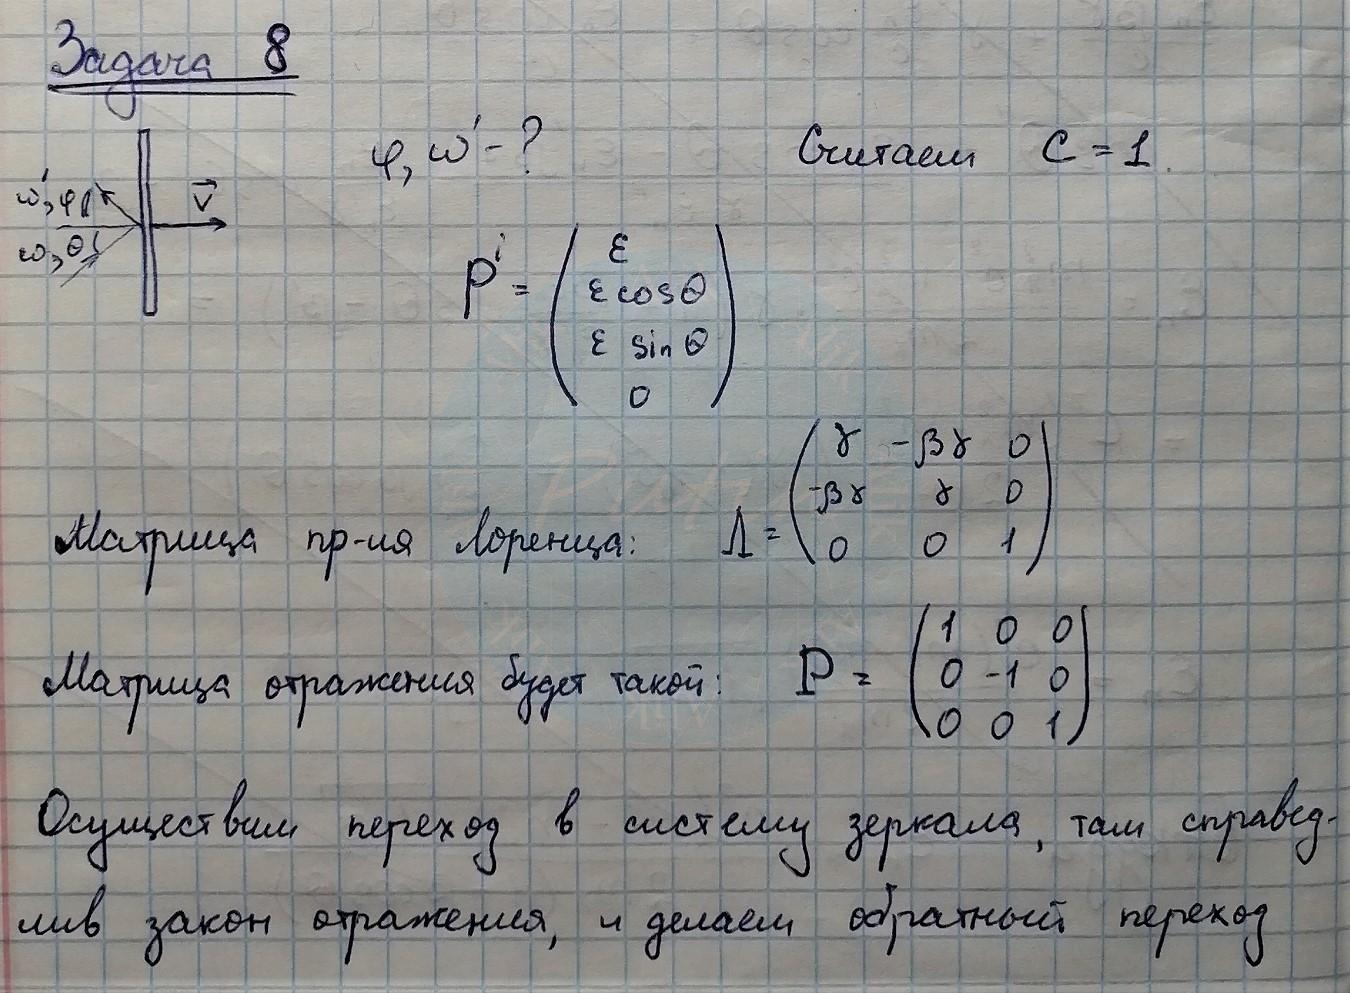 Задача 8
φ, ω' - ?
Считаем c = 1.
ω', φ
v⃗
ω, θ
pⁱ = ( ε
ε cos θ
ε sin θ
0 )
Матрица пр-ия Лоренца: Λ = ( γ -βγ 0
-βγ γ 0
0 0 1 )
Матрица отражения будет такой: P = ( 1 0 0
0 -1 0
0 0 1 )
Осуществим переход в систему зеркала, там справед-
лив закон отражения, и делаем обратный переход